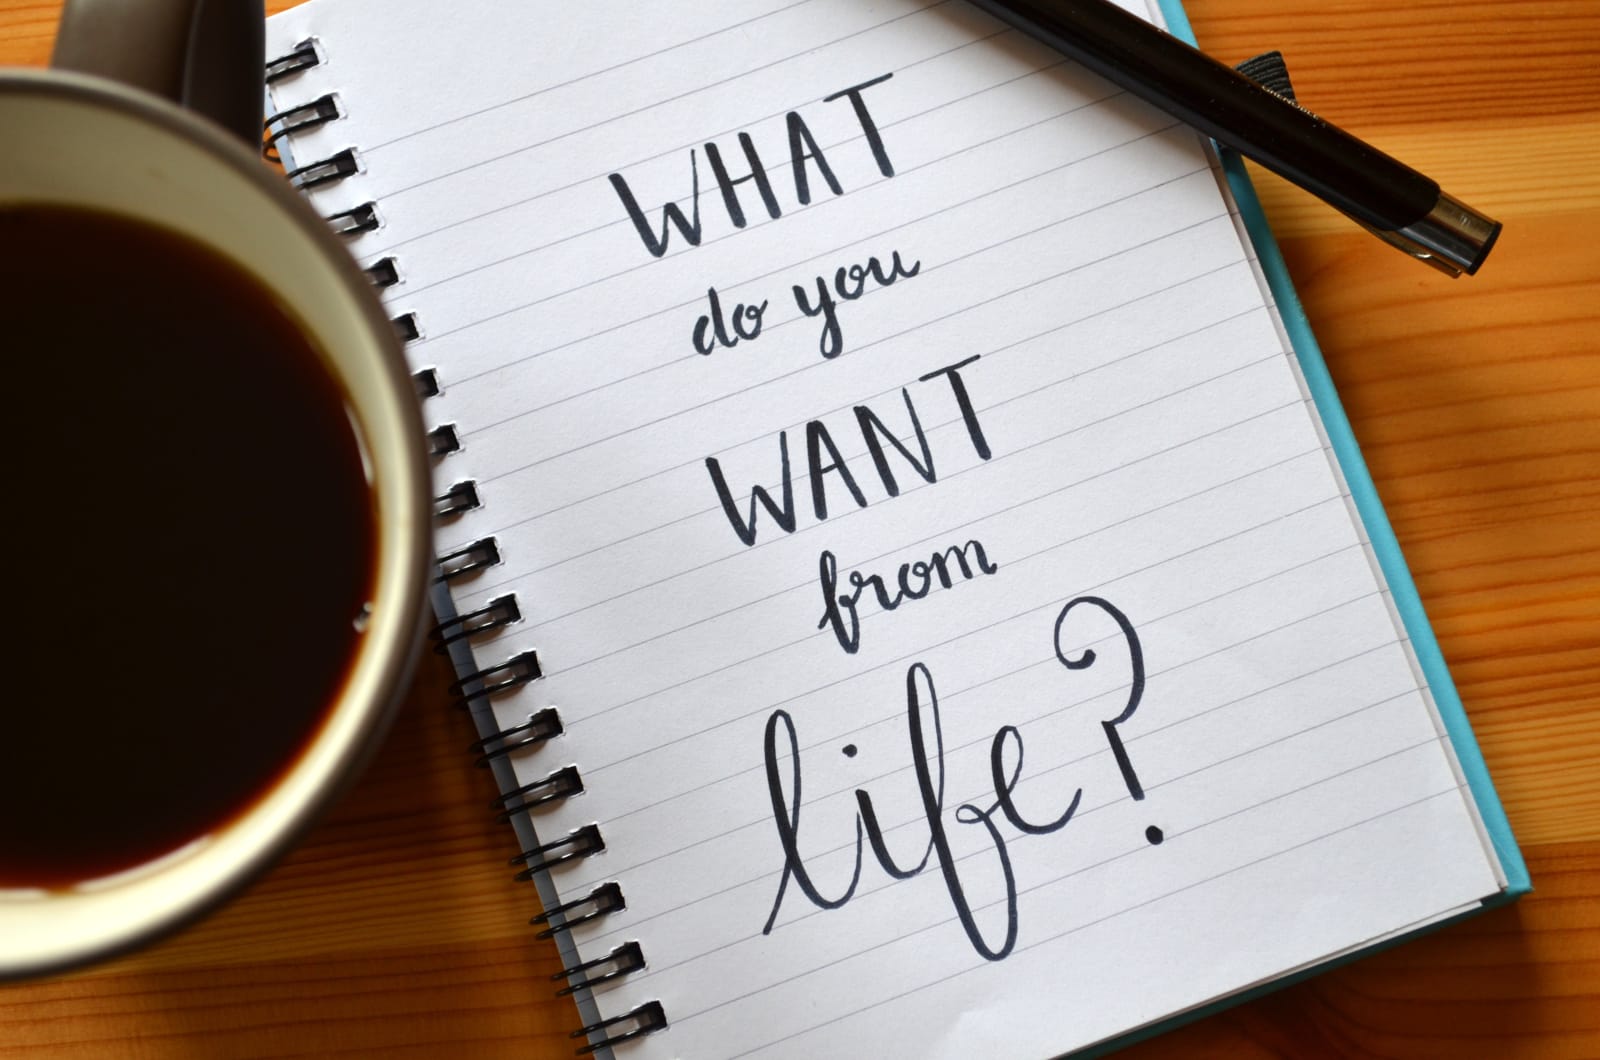 WHAT
do you
WANT
from
life?